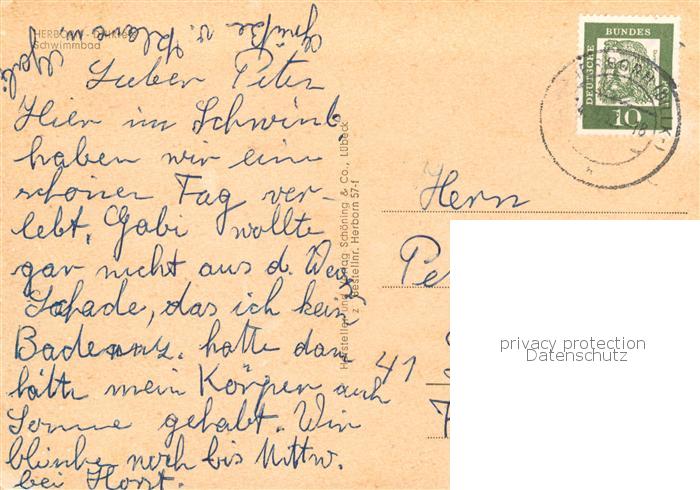 HERBORN - Dillkreis
Schwimmbad
Grüße v.
Lieber Peter
Hier im Schwimb.
haben wir eine
schönen Tag ver-
lebt. Gabi wollte
gar nicht aus d.
Schade, das ich kein
Badeanz. hatte dan
hätte mein Körper auch
Sonne gehabt. Wir
bleiben noch bis Mittw.
bei Horst.
Hersteller und Verlag Schöning & Co., Lübeck
Bestellnr. Herborn 57-f
DEUTSCHE BUNDES
10
HERBORN (DILLK.)
18
Herrn
Pe
41
privacy protection
Datenschutz